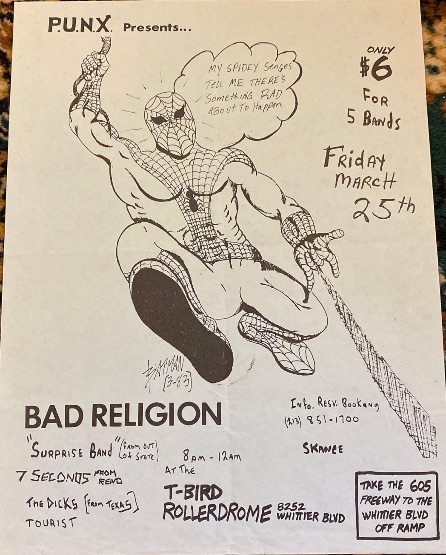 P.U.N.X. Presents...
ONLY
$6
FOR
5 BANDS
MY SPIDEY Senses
TELL ME THERE'S
Something RAD
About To Happen
FRIDAY
MARCH
25th
[3-83]
BAD RELIGION
"SURPRISE BAND" (FROM OUT
OF STATE)
7 SECONDS FROM
RENO
THE DICKS [FROM TEXAS]
TOURIST
8pm - 12am
AT THE
T-BIRD
ROLLERDROME 8252
WHITTIER BLVD
Info. Resv. Booking
(213) 851-1700
SKANCE
TAKE THE 605
FREEWAY TO THE
WHITTIER BLVD
OFF RAMP